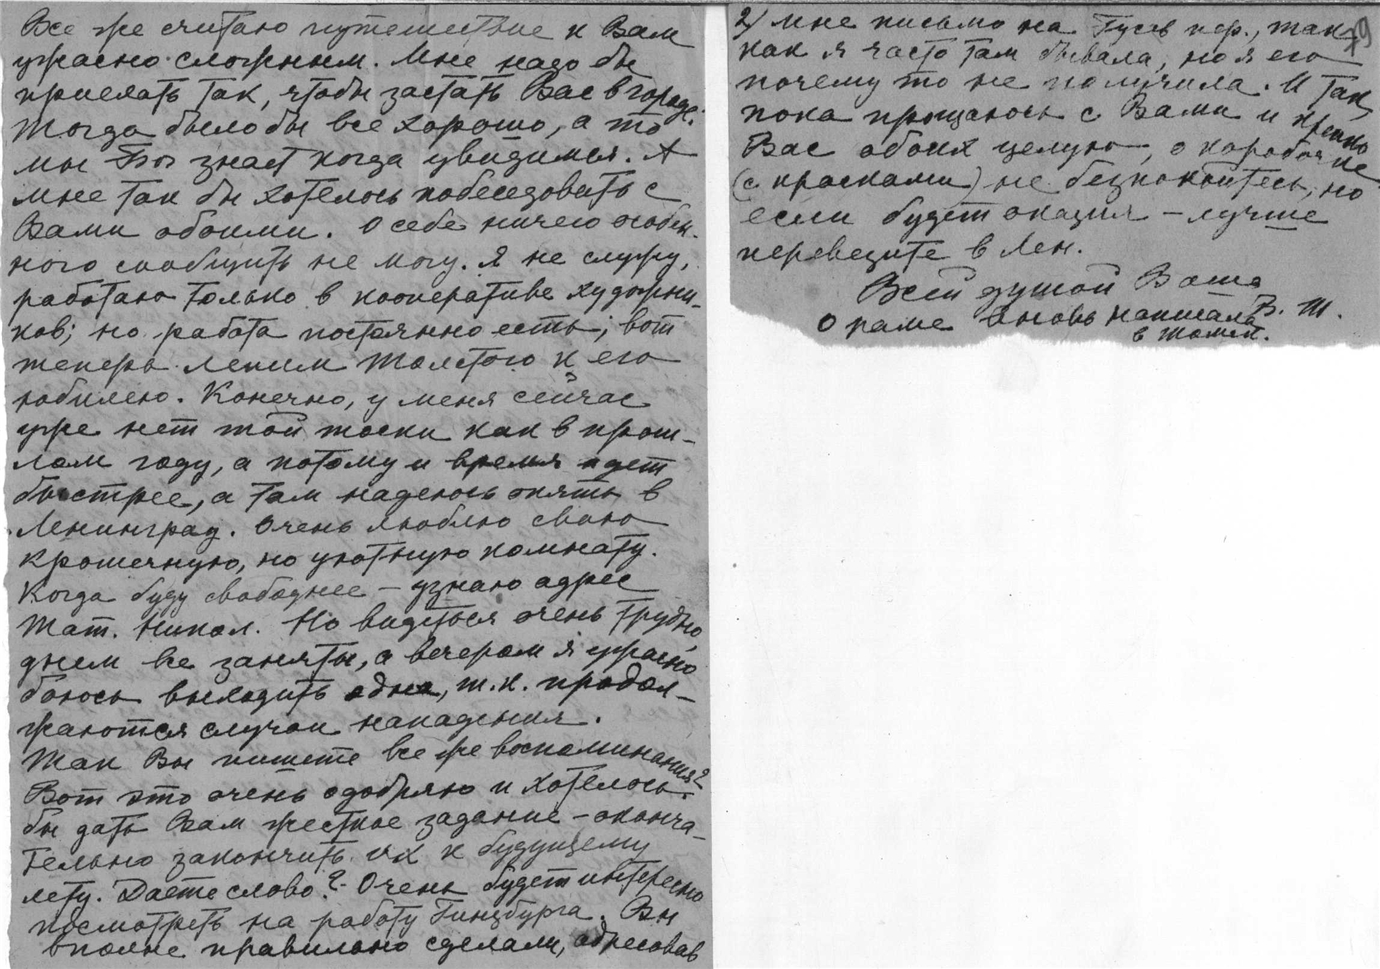 Все же считаю путешествие к Вам
ужасно сложным. Мне надо бы
приехать так, чтобы застать Вас в городе.
Тогда было бы все хорошо, а то
мы Бог знает когда увидимся. А
мне так бы хотелось побеседовать с
Вами обоими. О себе ничего особен-
ного сообщить не могу. Я не служу,
работаю только в кооперативе художни-
ков; но работа постоянно есть, вот
теперь лепим Толстого к его
юбилею. Конечно, у меня сейчас
уже нет той тоски как в прош-
лом году, а потому и время идет
быстрее, а там надеюсь опять в
Ленинград. Очень люблю свою
крошечную, но уютную комнату.
Когда буду свободнее – узнаю адрес
Тат. Никол. Но видеться очень трудно,
днем все заняты, а вечером я ужасно
боюсь выходить одна, т.к. продол-
жаются случаи нападения.
Так Вы пишете все же воспоминания?
Вот это очень одобряю и хотелось
бы дать Вам жесткое задание – оконча-
тельно закончить их к будущему
лету. Даете слово? Очень будет интересно
посмотреть на работу Гинзбурга. Вы
вполне правильно сделали, адресовав
2) мне письмо на Гусев пер., так 79
как я часто там бывала, но я его
почему то не получила. И так,
пока прощаюсь с Вами и крепко
Вас обоих целую, о коробочке
(с красками) не безпокойтесь, но
если будет оказия – лучше
перевезите в Лен.
Всей душой Ваша
В. Т.
О раме вновь написала
в Томск.